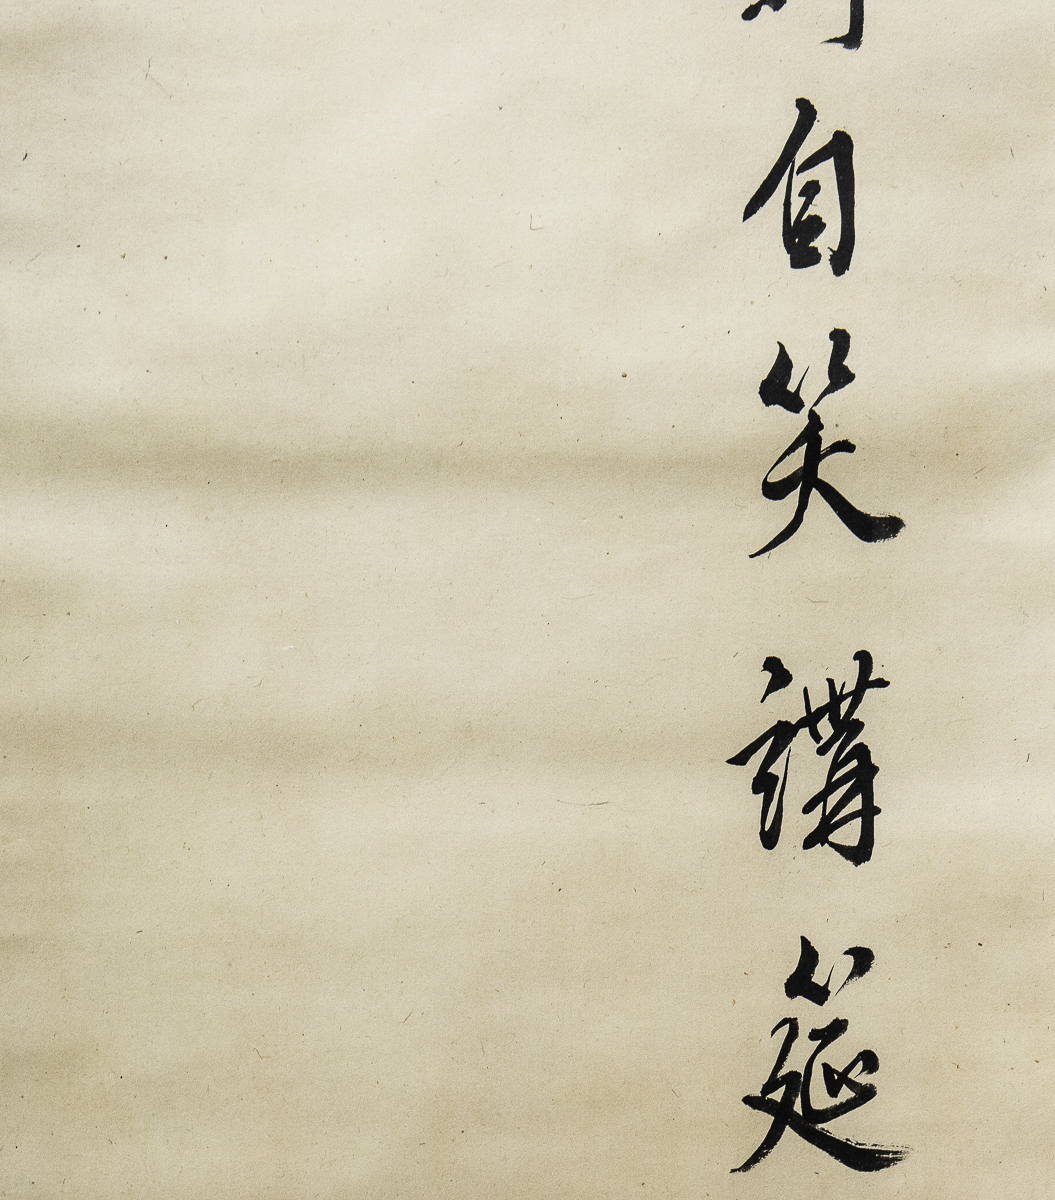 自笑講筵